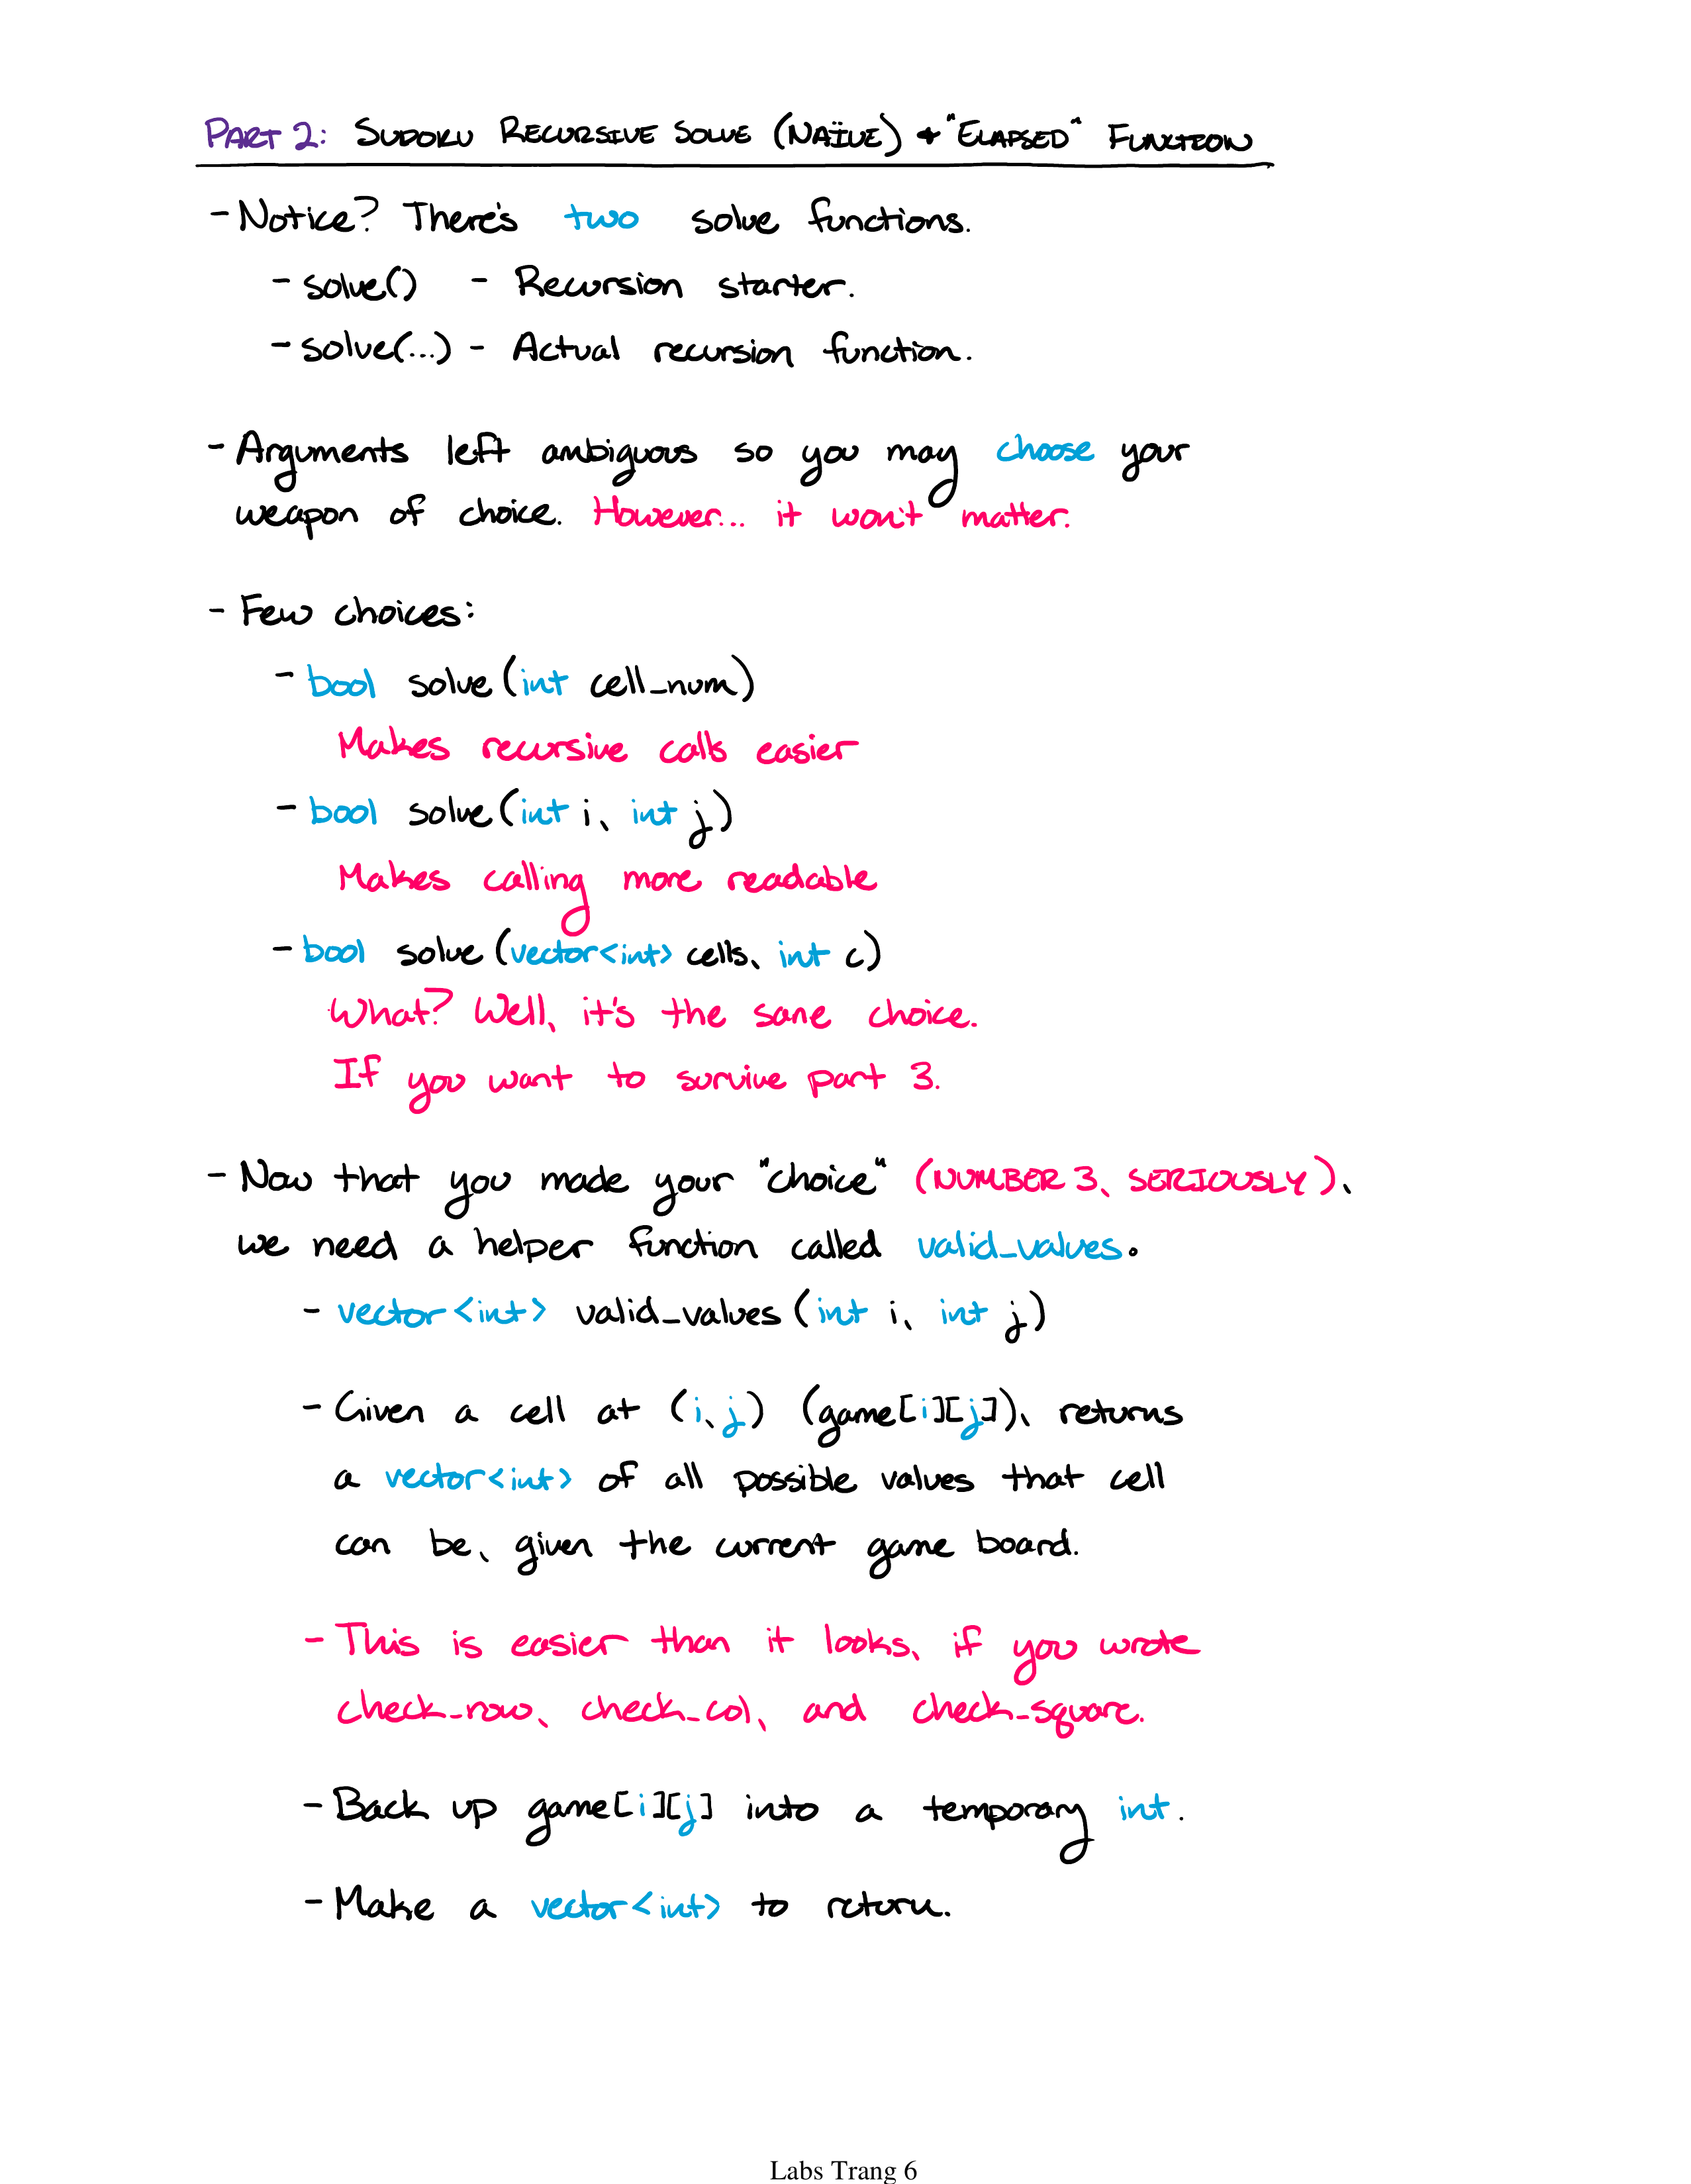 PART 2: SUDOKU RECURSIVE SOLVE (NAÏVE) + "ELAPSED" FUNCTION
- Notice? There's two solve functions.
- solve() - Recursion starter.
- solve(...) - Actual recursion function.
- Arguments left ambiguous so you may choose your
weapon of choice. However... it won't matter.
- Few choices:
- bool solve (int cell_num)
Makes recursive calls easier
- bool solve (int i, int j)
Makes calling more readable
- bool solve (vector<int> cells, int c)
What? Well, it's the sane choice.
If you want to survive part 3.
- Now that you made your "choice" (NUMBER 3, SERIOUSLY),
we need a helper function called valid_values.
- vector<int> valid_values (int i, int j)
- Given a cell at (i,j) (game[i][j]), returns
a vector<int> of all possible values that cell
can be, given the current game board.
- This is easier than it looks, if you wrote
check_row, check_col, and check_square.
- Back up game[i][j] into a temporary int.
- Make a vector<int> to return.
Labs Trang 6